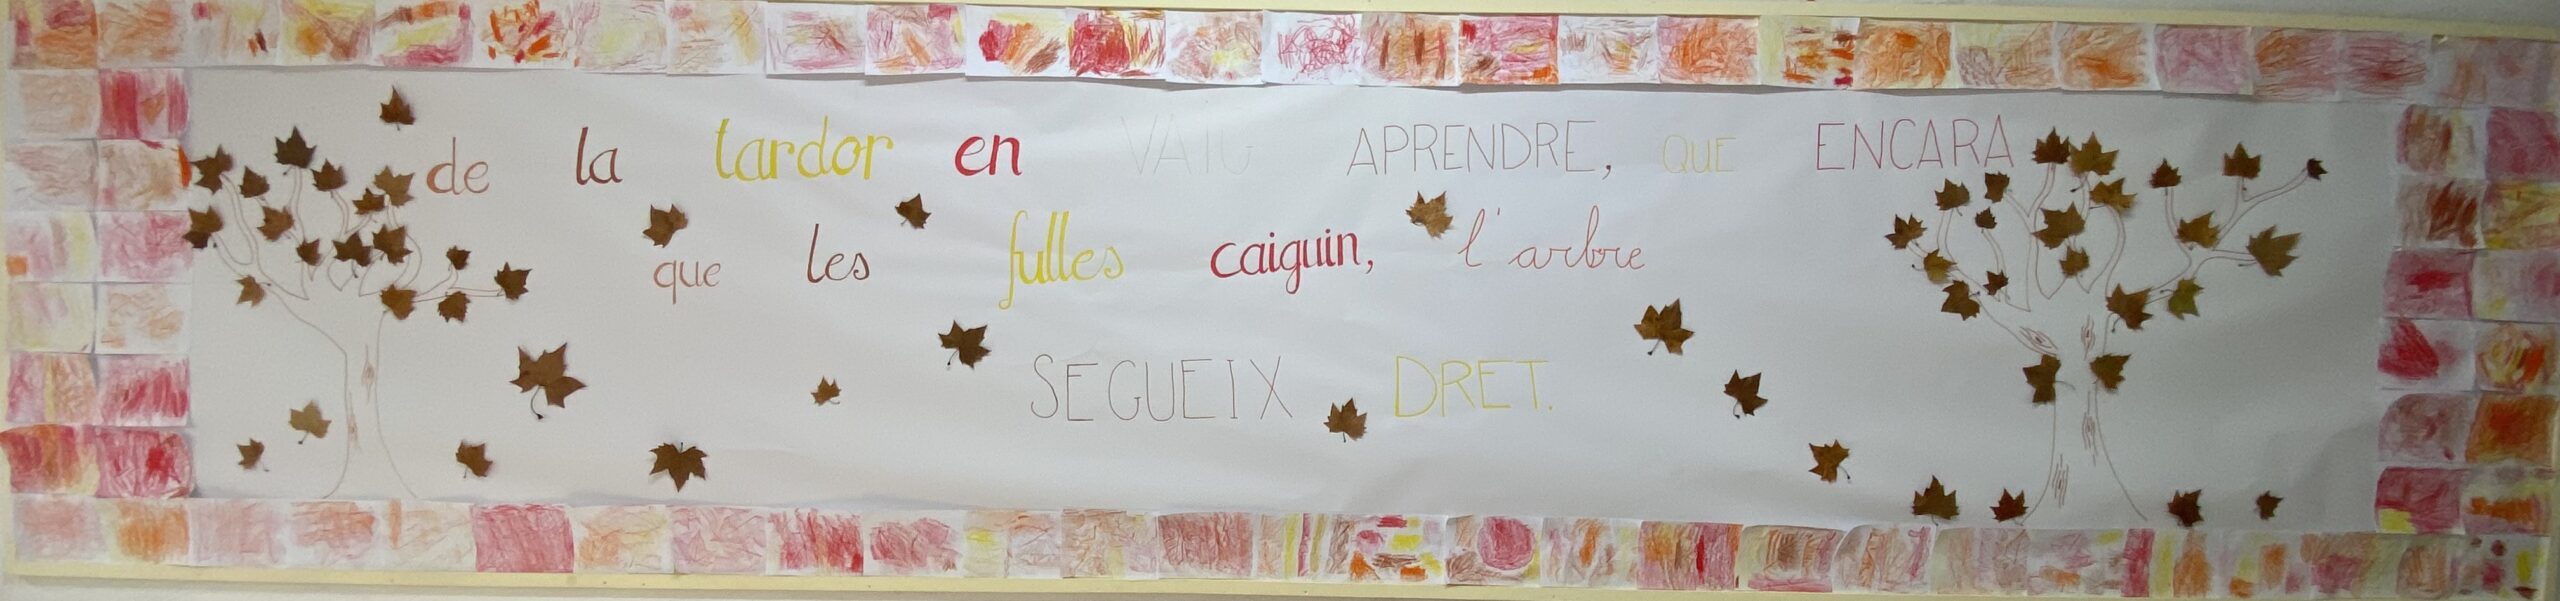 de la tardor en VAIG APRENDRE, QUE ENCARA
que les fulles caiguin, l'arbre
SEGUEIX DRET.